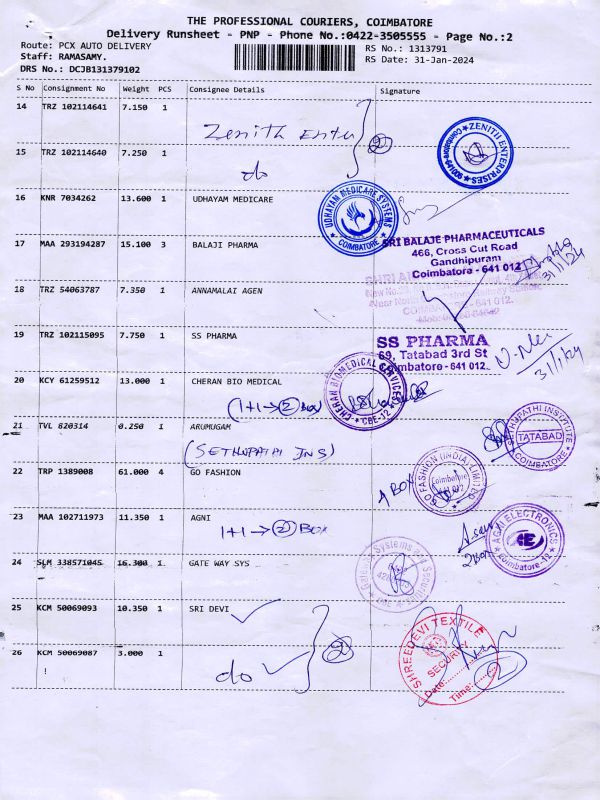 THE PROFESSIONAL COURIERS, COIMBATORE
Delivery Runsheet - PNP - Phone No.:0422-3505555 - Page No.:2
Route: PCX AUTO DELIVERY
RS No.: 1313791
Staff: RAMASAMY.
RS Date: 31-Jan-2024
DRS No.: DCJB131379102
S No Consignment No Weight PCS Consignee Details Signature
14 TRZ 102114641 7.150 1
Zenith Enter
2
ZENITH ENTERPRISES
15 TRZ 102114640 7.250 1
do
16 KNR 7034262 13.600 1 UDHAYAM MEDICARE
UDHAYAM MEDICARE SYSTEMS
COIMBATORE
17 MAA 293194287 15.100 3 BALAJI PHARMA
SRI BALAJE PHARMACEUTICALS
466, Cross Cut Road
Gandhipuram
Coimbatore - 641 012
31/1/24
18 TRZ 54063787 7.350 1 ANNAMALAI AGEN
19 TRZ 102115095 7.750 1 SS PHARMA
SS PHARMA
69, Tatabad 3rd St
Coimbatore - 641 012.
31/1/24
20 KCY 61259512 13.000 1 CHERAN BIO MEDICAL
CHERAN BIOMEDICAL SERVICES
CBE-12
1+1→2 Box
21 TVL 620314 0.250 1 ARUMUGAM
(SETHUPATHI INS)
SETHUPATHI INSTITUTE
TATABAD
COIMBATORE
22 TRP 1389008 61.000 4 GO FASHION
4 BOX
GO FASHION (INDIA) LIMITED
Coimbatore
23 MAA 102711973 11.350 1 AGNI
1+1→2 BOX
2 Box
AGNI ELECTRONICS
Coimbatore-12
24 SLM 338571045 16.300 1 GATE WAY SYS
25 KCM 50069093 10.350 1 SRI DEVI
2
SHREEDEVI TEXTILE
SECURITY
Date:
Time:
26 KCM 50069087 3.000 1
do